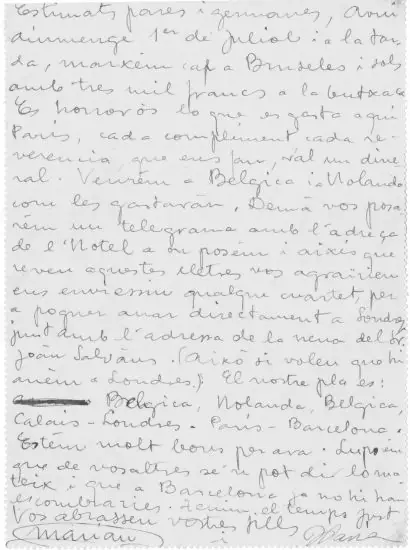 Estimats pares i germanes, avui
diumenge 1er de Juliol i a la tar
da, marxém cap a Bruseles i sols
amb tres mil francs a la butxaca
Es horrorós lo que es gasta aquí
París, cada compliment cada re-
verencia, que ens fan, val un dine
ral. Veurém a Belgica i a Holanda
com les gastarán. Demá vos posa
rém un telegrama amb l'adreça
de l'Hotel a on posém i aixís que
reveu aquestes lletres vos agrairiem
ens enviessiu qualque cuartet, per
a poguer anar directament a Londres
junt amb l'adressa de la neva del Sr.
Joán Salváns. (Aixó si voleu que hi
aném a Londres). El nostre pla es:
Belgica, Holanda, Belgica,
Calais - Londres - París - Barcelona.
Estém molt bons per ara. Suposém
que de vosaltres se'n pot dir lo ma
teix i que a Barcelona ja no hi ha
escombraries. el temps just
Vos abrassen vostres fills